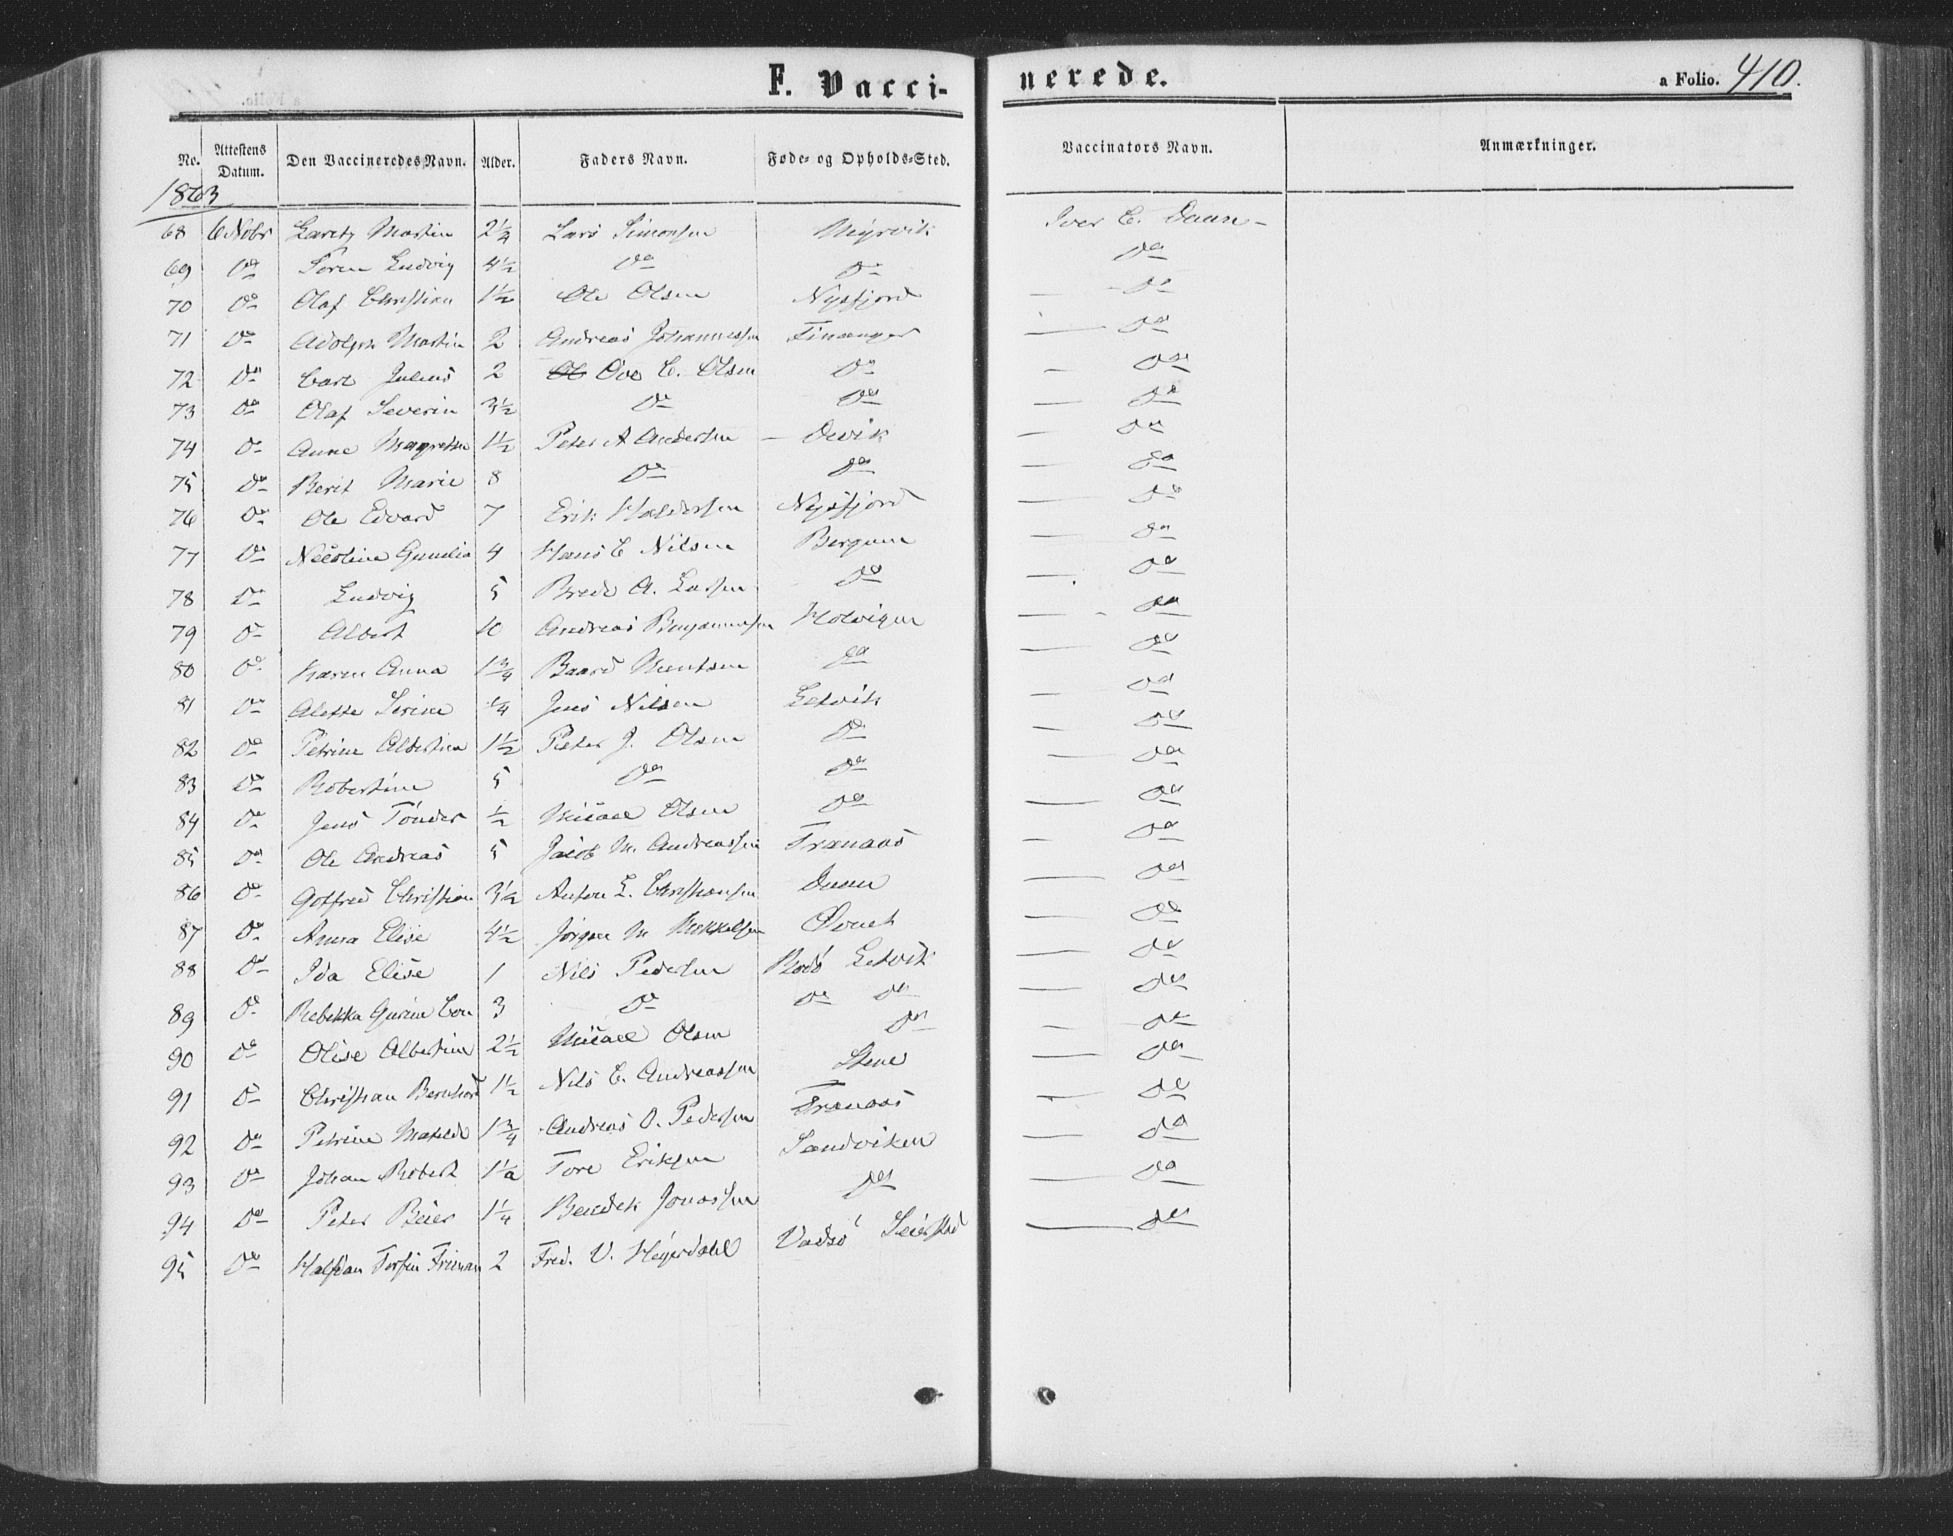 F. Vaccinerede. a Folio. 410.
No. Attestens Datum. Den Vaccineredes Navn. Alder. Faders Navn. Føde- og Opholds-Sted. Vaccinators Navn. Anmærkninger.
1863
68 6 Nobr Laretz Martin 2¼ Lars Simonsen Iver C. Daun
69 Do Søren Ludvig 4½ Do Do Do
70 Do Olaf Christian 1½ Ole Olsen Nysfjord Do
71 Do Adolph Martin 2 Andreas Johannessen Finanger Do
72 Do Carl Julius 2 Ove C. Olsen Do Do
73 Do Olaf Severin 3½ Do Do Do
74 Do Anne Magrethe 1½ Peter A Andersen Do
75 Do Berit Marie 8 Do Do Do
76 Do Ole Edvard 7 Erik Haldorsen Nysfjord Do
77 Do Nicoline Gunelia 4 Hans C Nilsen Do
78 Do Ludvig 5 Brede A. Larsen Do Do
79 Do Albert 10 Andreas Benjaminsen Holvigen Do
80 Do Karen Anna 1¾ Baard Mentsen Do Do
81 Do Alette Serine ¼ Jens Nilsen Letvik Do
82 Do Petrine Albertina 1½ Peter J. Olsen Do Do
83 Do Robertine 5 Do Do Do
84 Do Jens Tønder ½ Micael Olsen Do Do
85 Do Ole Andreas 5 Jacob M. Andreassen Tranaas Do
86 Do Gotfred Christian 3½ Anton L. Christiansen Daun Do
87 Do Anna Elise 4½ Jørgen M Mikkelsen Do
88 Do Ida Elise 1 Nils Pedersen Rødø Letvik Do
89 Do Rebekka Gurine 3 Do Do Do Do
90 Do Olise Albertine 2½ Micael Olsen Do Do
91 Do Christian Bernhard 1½ Nils C. Andreassen Stene Do
92 Do Petrine Matilde 1¾ Andreas O. Pedersen Tranaas Do
93 Do Johan Robert 1½ Tore Eriksen Sandviken Do
94 Do Peter Beier 1¼ Bendik Jonassen Do Do
95 Do Halfdan Torfin Friman 2 Fred. V. Heyerdahl Vadsö Do